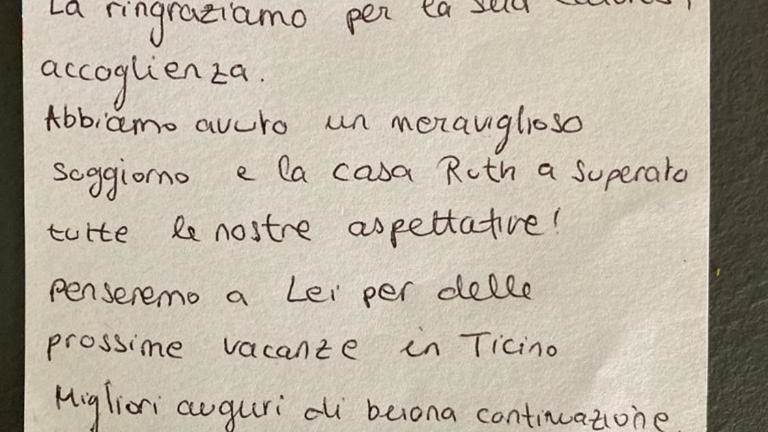 La ringraziamo per la sua
accoglienza.
Abbiamo avuto un meraviglioso
soggiorno e la casa Ruth a superato
tutte le nostre aspettative!
penseremo a Lei per delle
prossime vacanze in Ticino
Migliori auguri di buona continuazione